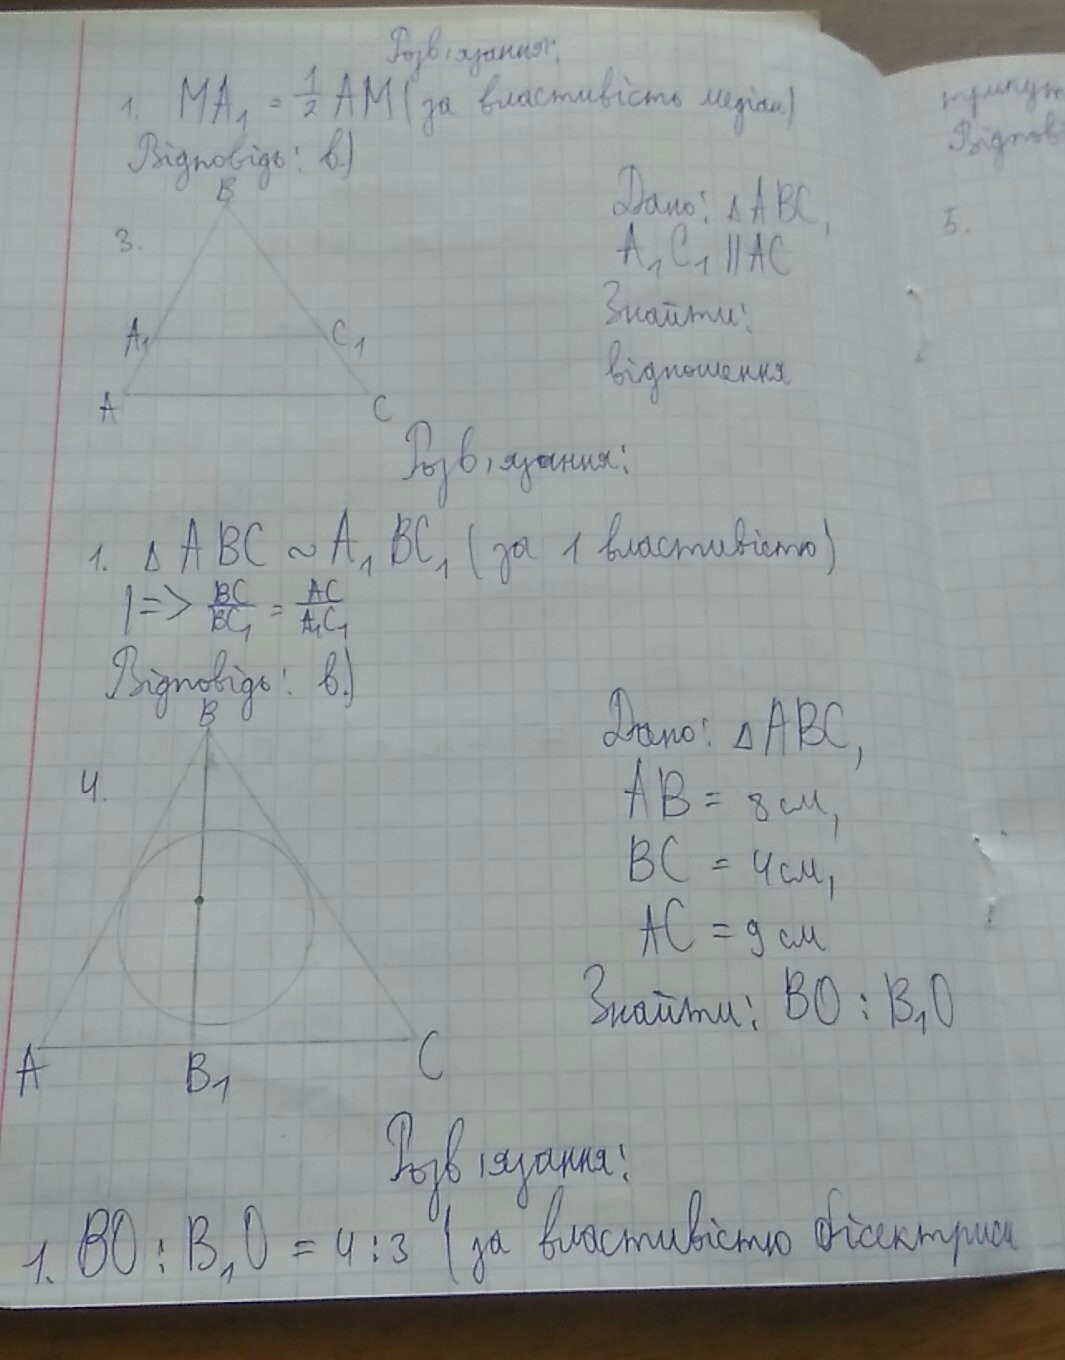 Розв'язання:
1. MA₁ = 1/2 AM (за властивість медіан)
Відповідь: в.)
3.
B
A₁
C₁
A
C
Дано: △ABC,
A₁C₁ || AC
Знайти:
відношення
Розв'язання:
1. △ABC ~ A₁BC₁ (за 1 властивістю)
|=> BC/BC₁ = AC/A₁C₁
Відповідь: в.)
4.
B
A
B₁
C
Дано: △ABC,
AB = 8 см,
BC = 4 см,
AC = 9 см
Знайти: BO : B₁O
Розв'язання:
1. BO : B₁O = 4 : 3 (за властивістю бісектриси
5.